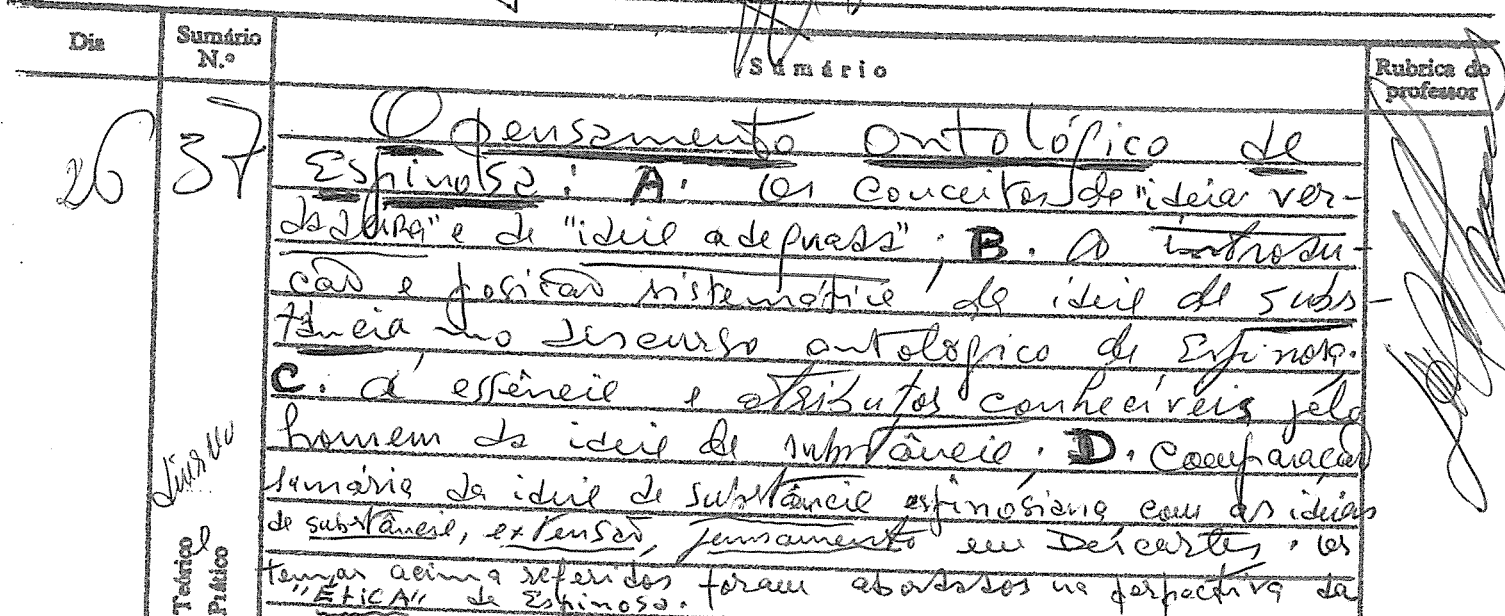 Dia
Sumário N.º
Sumário
Rubrica do professor
26
37
O pensamento ontológico de
Espinosa: A. Os conceitos de "ideia ver-
dadeira" e de "ideia adequada"; B. A introdu-
ção e posição sistemática da ideia de subs-
tância no discurso ontológico de Espinosa.
C. A essência e atributos conhecíveis pelo
homem da ideia de substância. D. Comparação
sumária da ideia de substância espinosiana com as ideias
de substância, extensão, pensamento em Descartes. Os
temas acima referidos foram abordados na perspectiva da
"ÉTICA" de Espinosa.
diurno
Teórico e
Prático